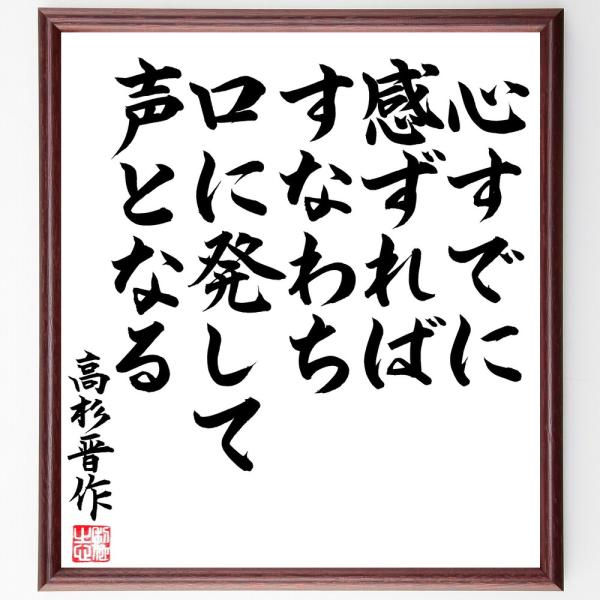 心すでに
感ずれば
すなわち
口に発して
声となる
高杉晋作